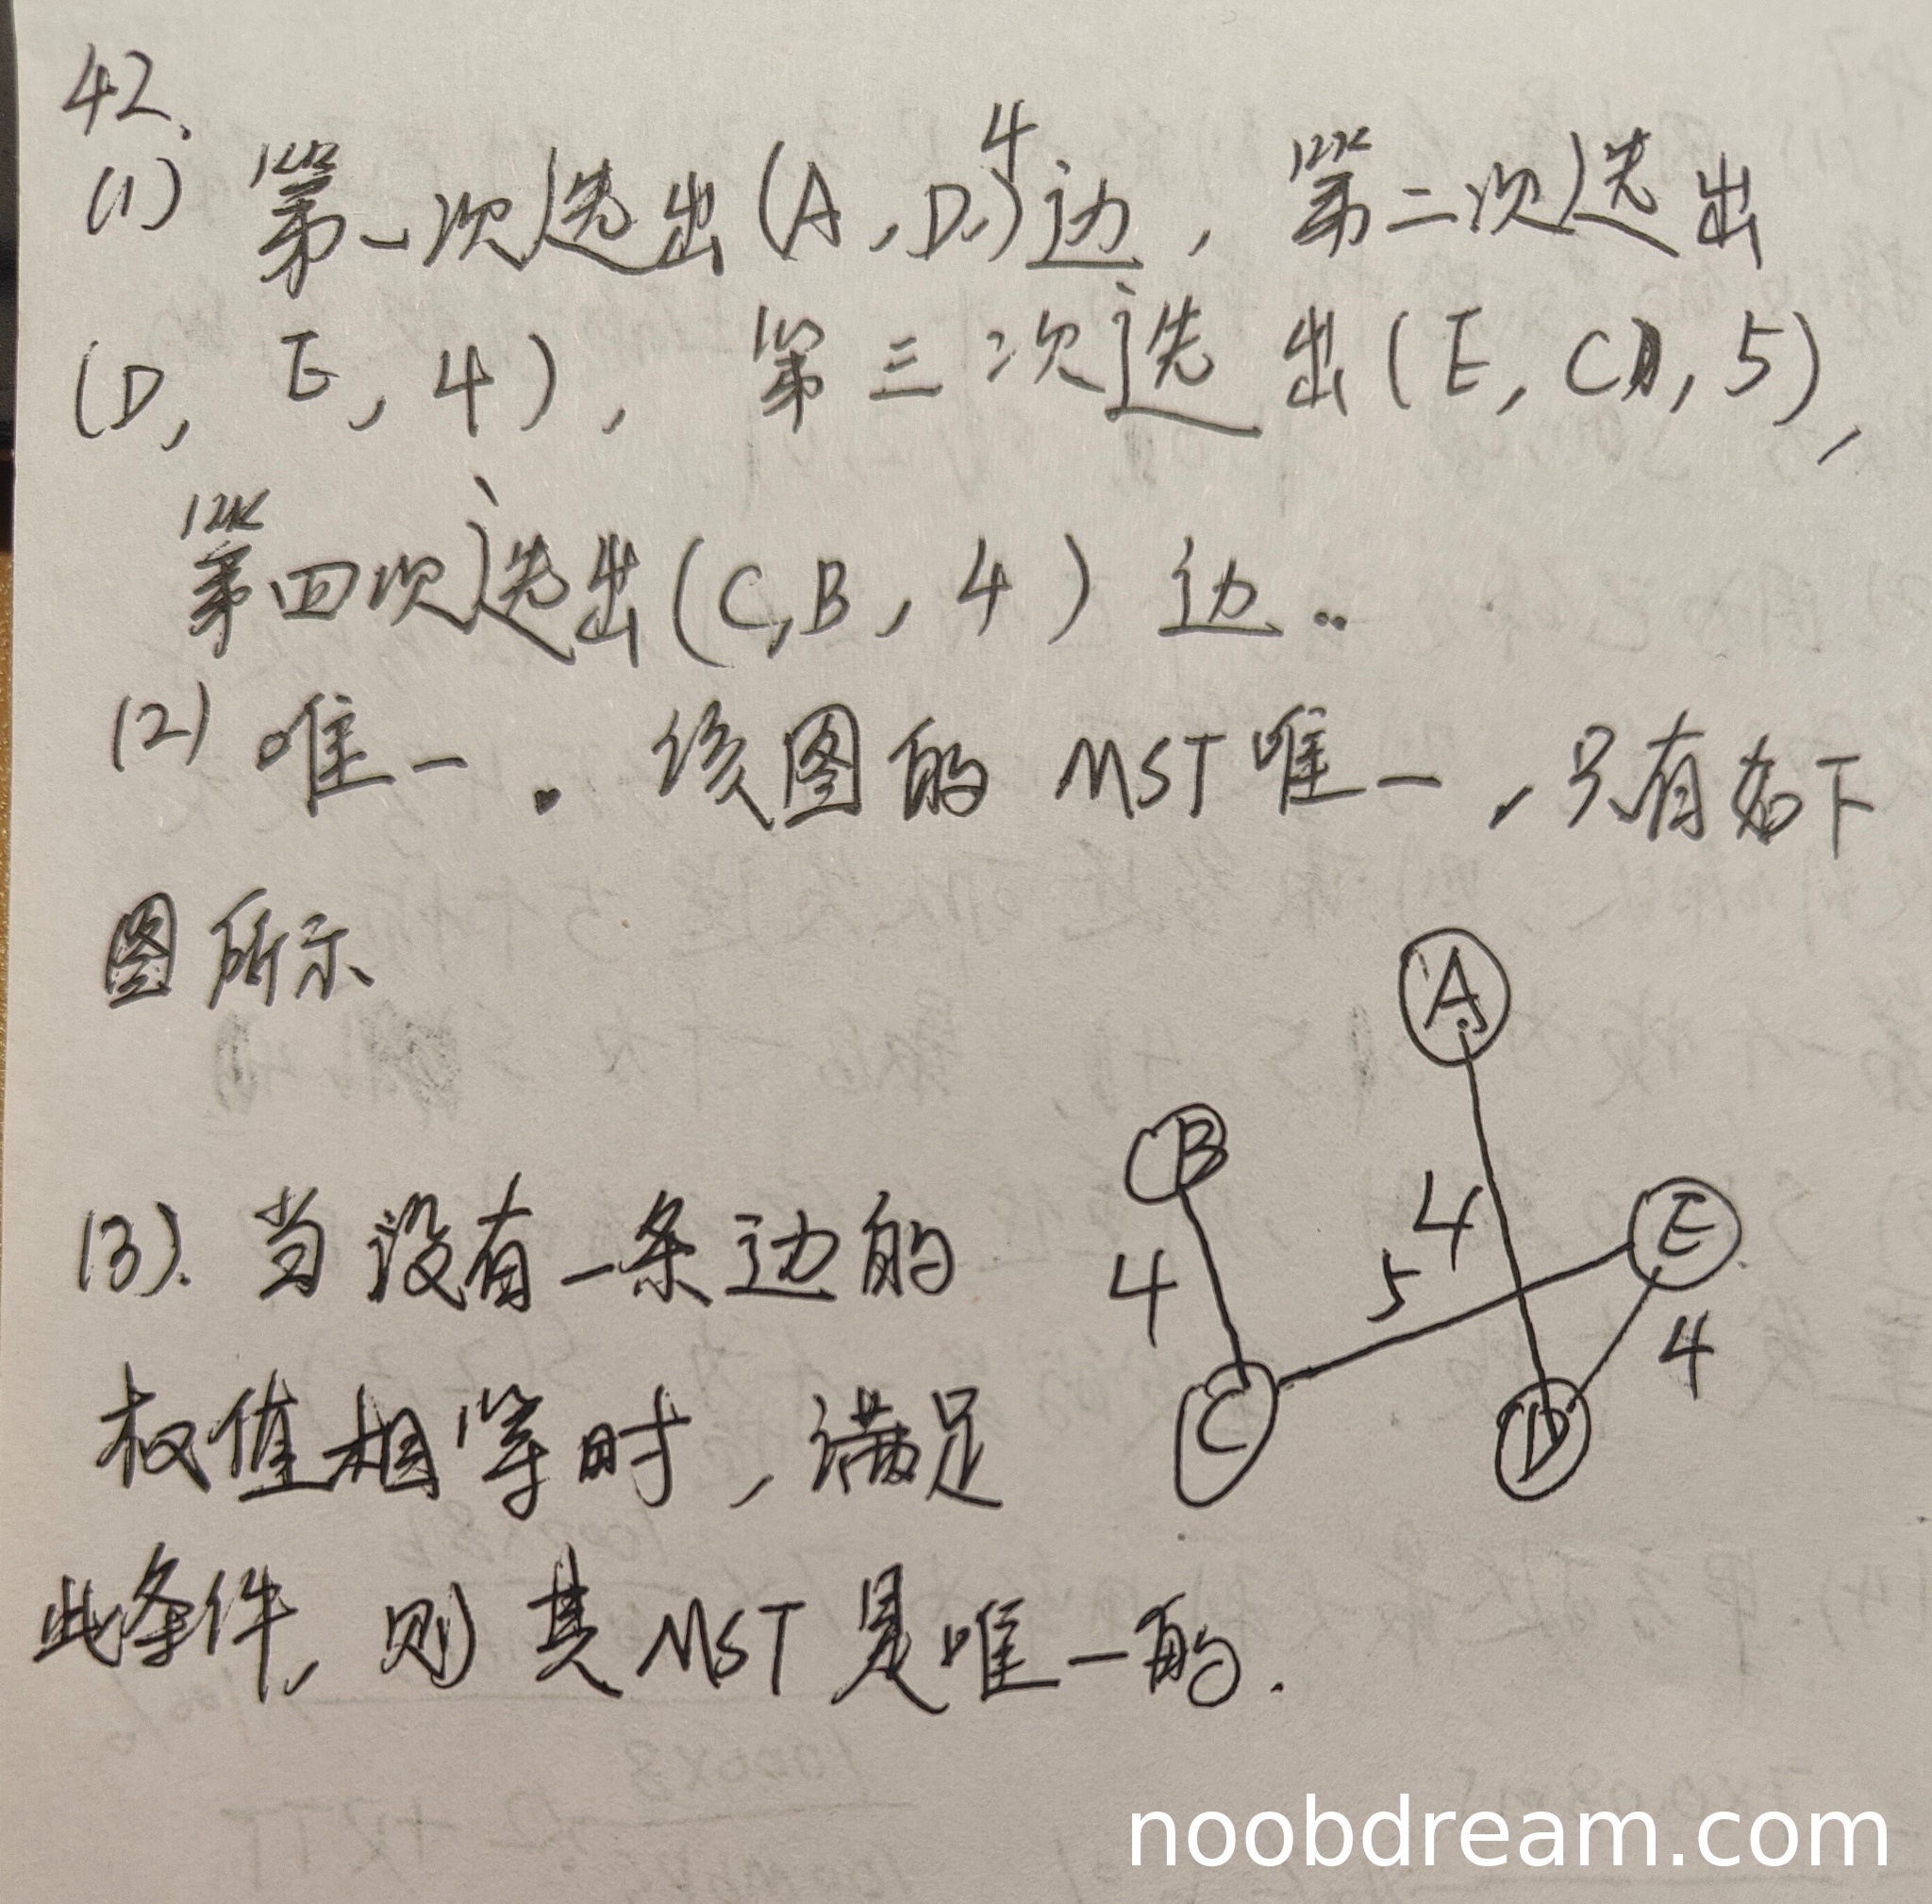 42.
(1) 第一次选出(A,D,4)边，第二次选出
(D, E, 4), 第三次选出(E, C, 5),
第四次选出(C,B,4)边..
(2) 唯一. 该图的MST唯一,只有如下
图所示
A
B
E
4
4
5
4
C
D
(3). 当没有一条边的
权值相等时,满足
此条件,则其MST是唯一的.
noobdream.com